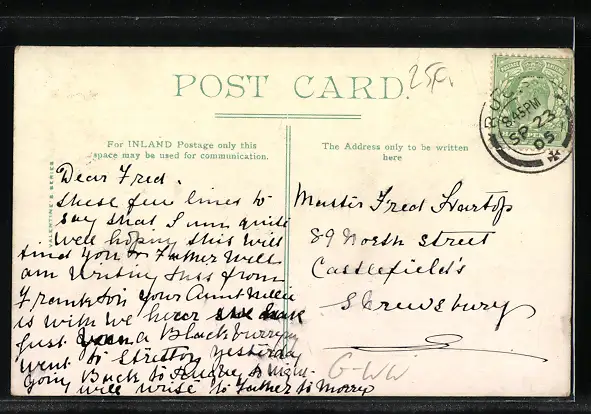 POST CARD.
For INLAND Postage only this
space may be used for communication.
The Address only to be written
here
VALENTINE'S SERIES
8.45PM
SP 23
05
Dear Fred.
these few lines to
say that I am quite
well hoping this will
find you & Father well
am writing this from
Frankton your Aunt Millie
is with me have
just been a Blackburrying
went to Stretton yesterday
going Back to to night
will write to Father to Morrow
Master Fred Hartop
89 North Street
Castlefield's
Shrewsbury
G-WW